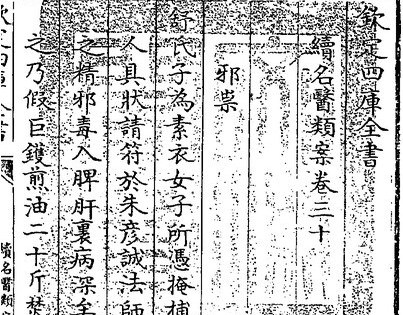 欽定四庫全書
續名醫類案卷三十
邪祟
舒氏子為素衣女子所憑掩捕
人具狀請符於朱彦誠法師
之精邪毒入脾肝裏病深
之乃假巨鑊煎油二十斤焚
欽定四庫全書
續名醫類